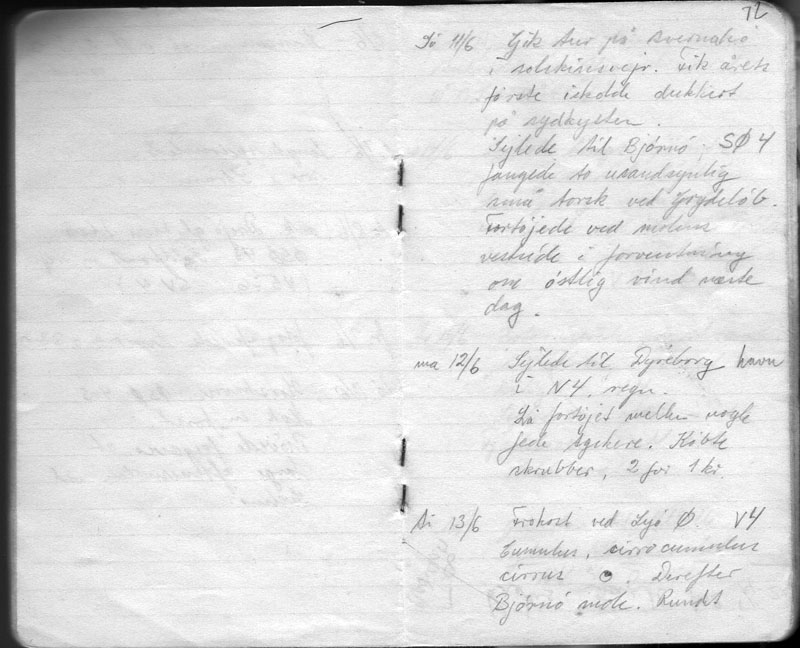 72
Sö 11/6 Gik tur på Avernakö
i solskinsvejr. Fik årets
første iskolde dukkert
på sydkysten.
Sejlede til Bjørnö, SØ 4
fangede to usandsynlig
små torsk ved
Fortøjede ved molens
vestside i forventning
om østlig vind næste
dag.
ma 12/6 Sejlede til Dyreborg havn
i N4, regn.
Lå fortøjet mellem nogle
fede
Købte
skrubber, 2 for 1 kr.
Ti 13/6 Frokost ved Lyö Ø V4
Cumulus, cirrocumulus
cirrus Derefter
Bjørnö mole. Rundt